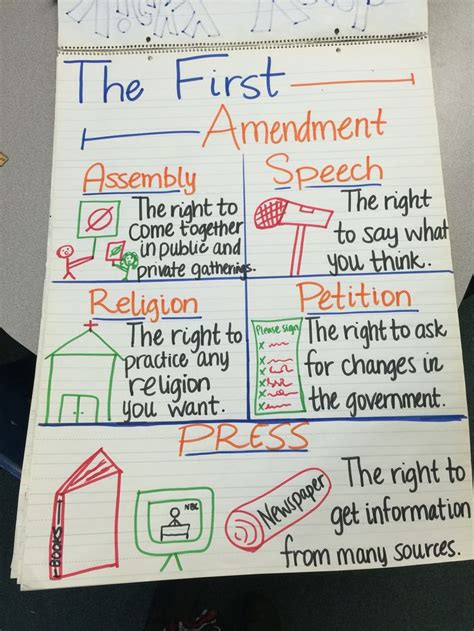 The First
Amendment
Assembly
The right to
come together
in public and
private gatherings.
Speech
The right
to say what
you think.
Religion
The right to
practice any
religion
you want.
Petition
Please sign
x
x
x
x
x
The right to ask
for changes in
the government.
PRESS
BOOKS
NBC
Newspaper
The right to
get information
from many sources.